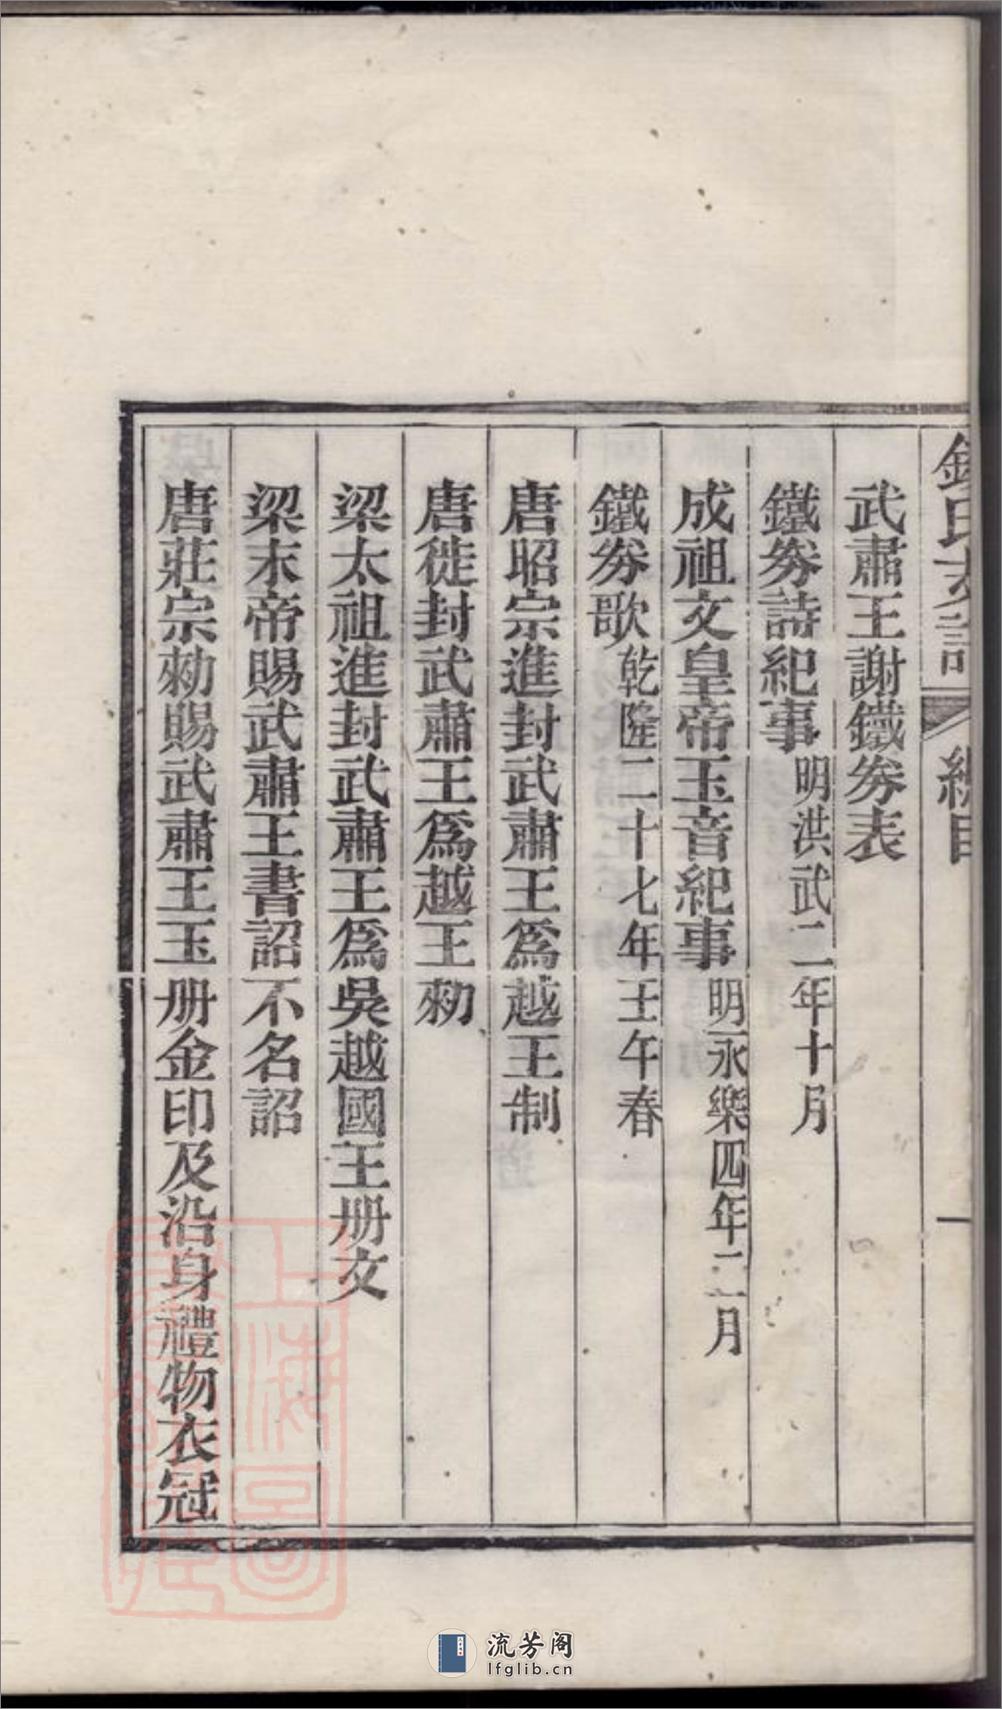 錢氏家譜 總目 一
武肅王謝鐵劵表
鐵劵詩紀事 明洪武二年十月
成祖文皇帝玉音紀事 明永樂四年二月
鐵劵歌 乾隆二十七年壬午春
唐昭宗進封武肅王爲越王制
唐徙封武肅王爲越王勑
梁太祖進封武肅王爲吳越國王册文
梁末帝賜武肅王書詔不名詔
唐莊宗勑賜武肅王玉册金印及沿身禮物衣冠
上海圖書館藏
流芳阁
lfglib.cn